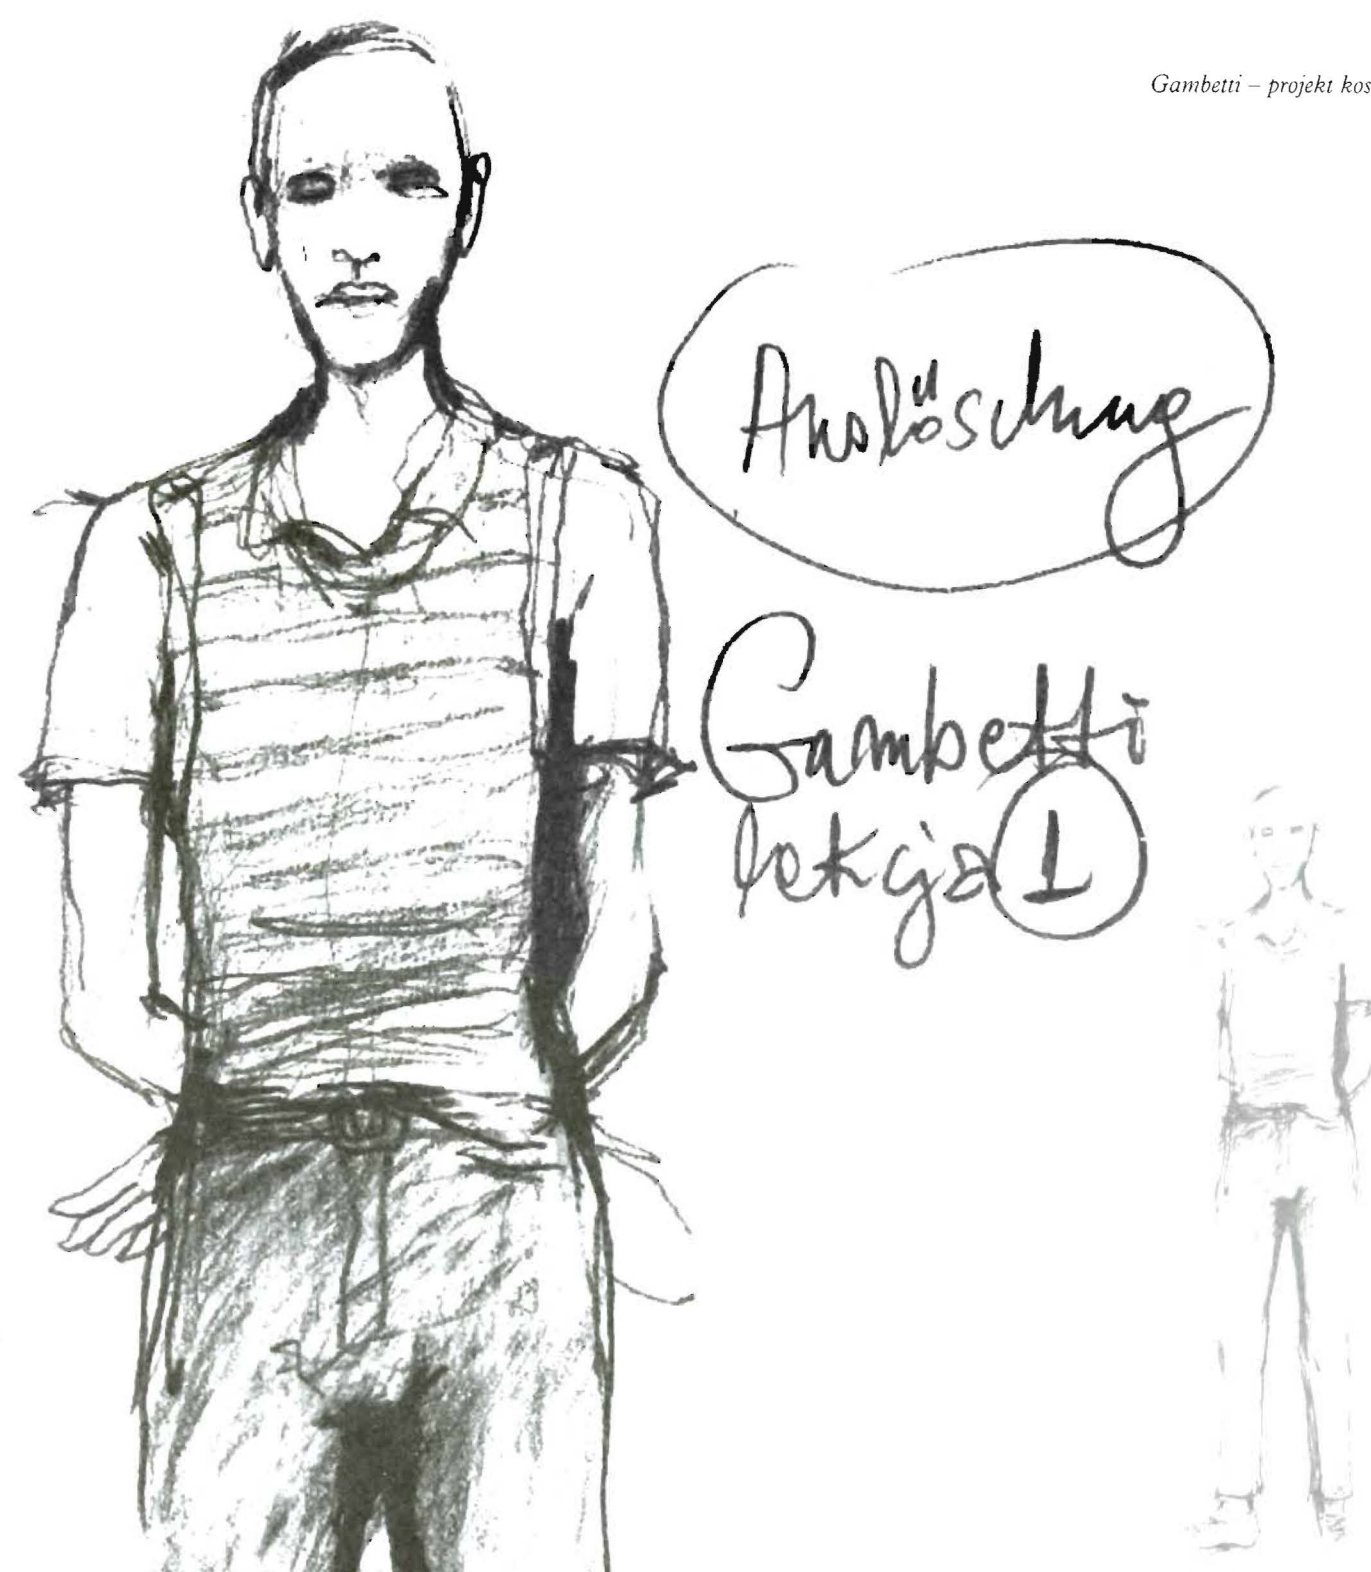 Gambetti – projekt kos
Auslöschung
Gambetti
lekcja 1